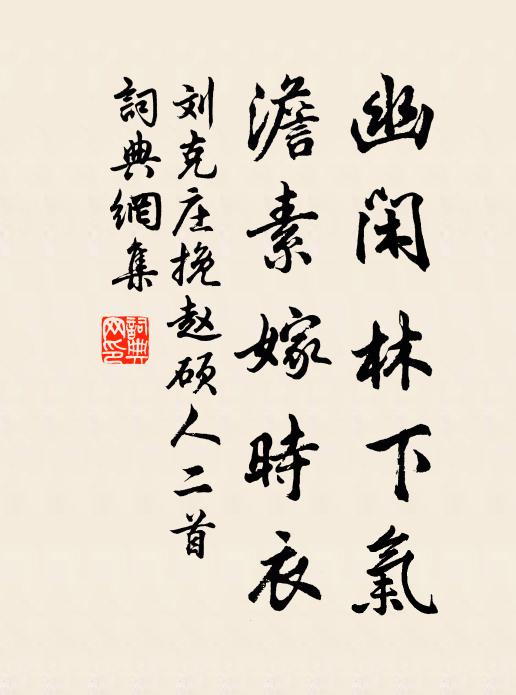 幽閑林下氣
澹素嫁時衣
刘克庄挽赵硕人二首
詞典網集
詞典网印